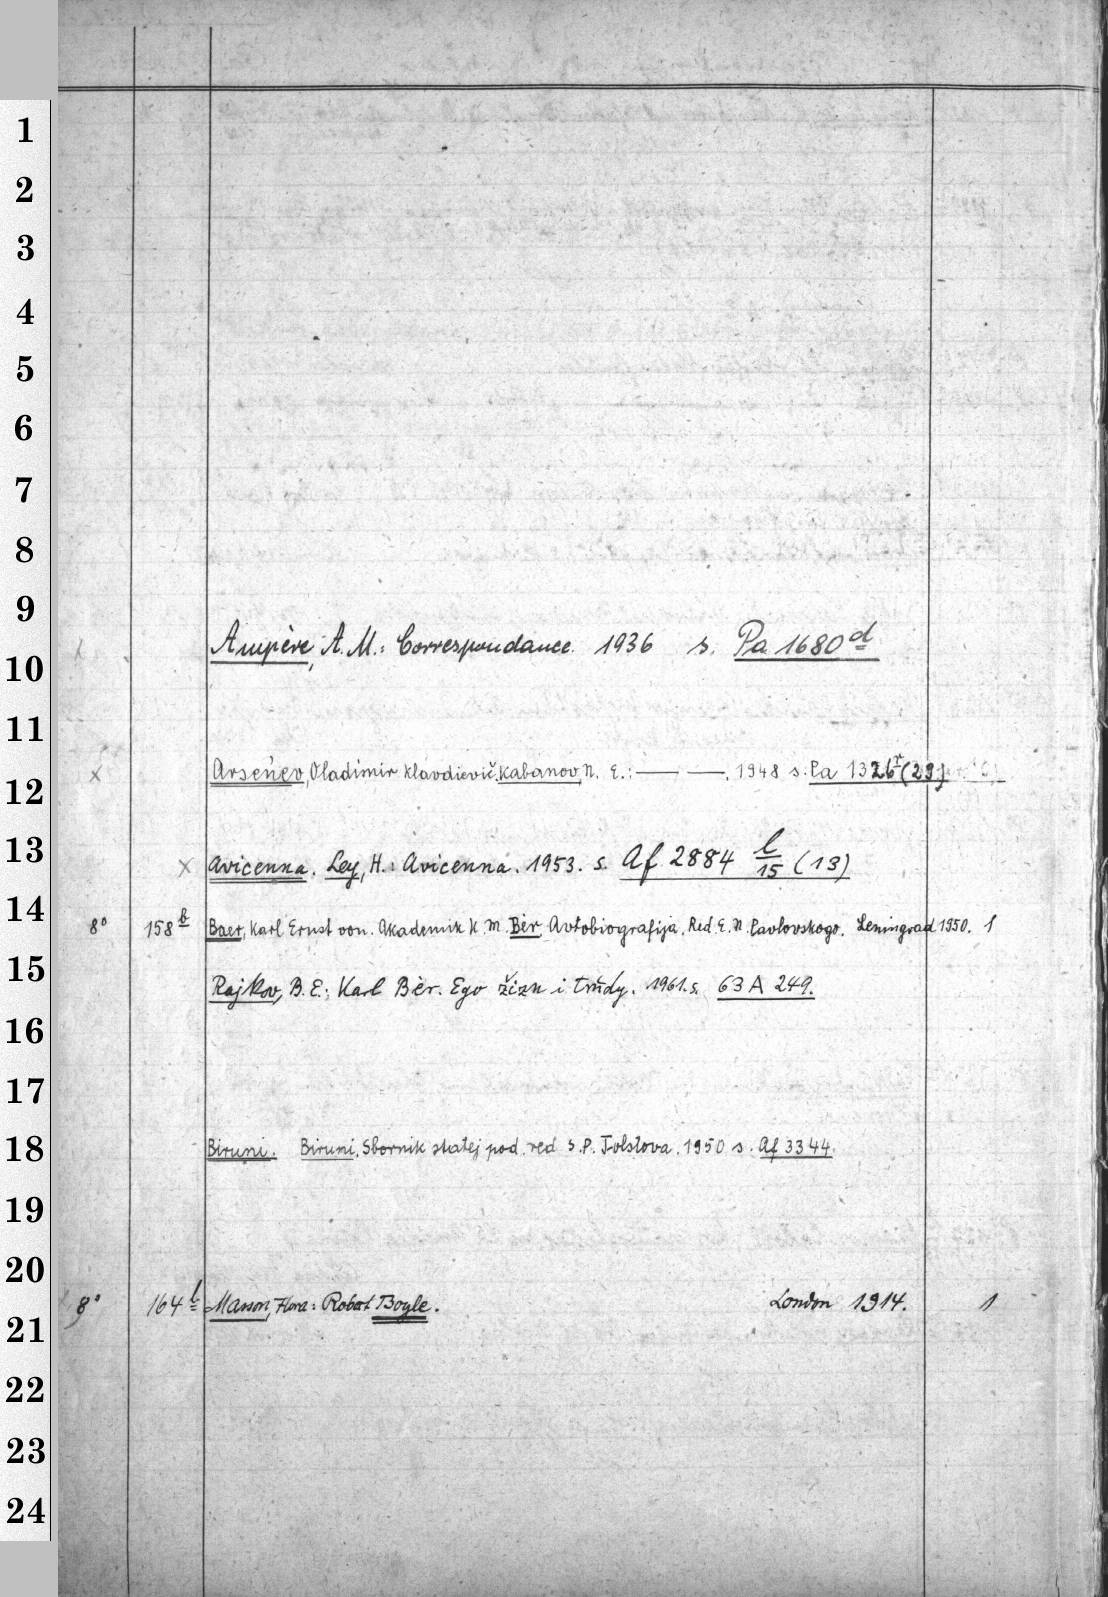 1
2
3
4
5
6
7
8
9
Ampère, A. M.: Correspondance. 1936 s. Pa 1680 d
10
11
x Arseńev, Vladimir Klavdievič. Kabanov, N. E.: — —. 1948 s. Pa 1326 r (29)
12
13
x Avicenna. Ley, H.: Avicenna. 1953. s. Af 2884 l/15 (13)
14
8° 158 b Baer, Karl Ernst von. Akademik K. M. Bėr. Avtobiografija. Red. E. N. Pavlovskogo. Leningrad 1950. 1
15
Rajkov, B. E.: Karl Bėr. Ego žizn i trudy. 1961. s. 63 A 249.
16
17
18
Biruni. Biruni. Sbornik statej pod. red S. P. Tolstova. 1950 s. Af 3344.
19
20
8° 164 l Masson, Flora: Robert Boyle. London 1914. 1
21
22
23
24